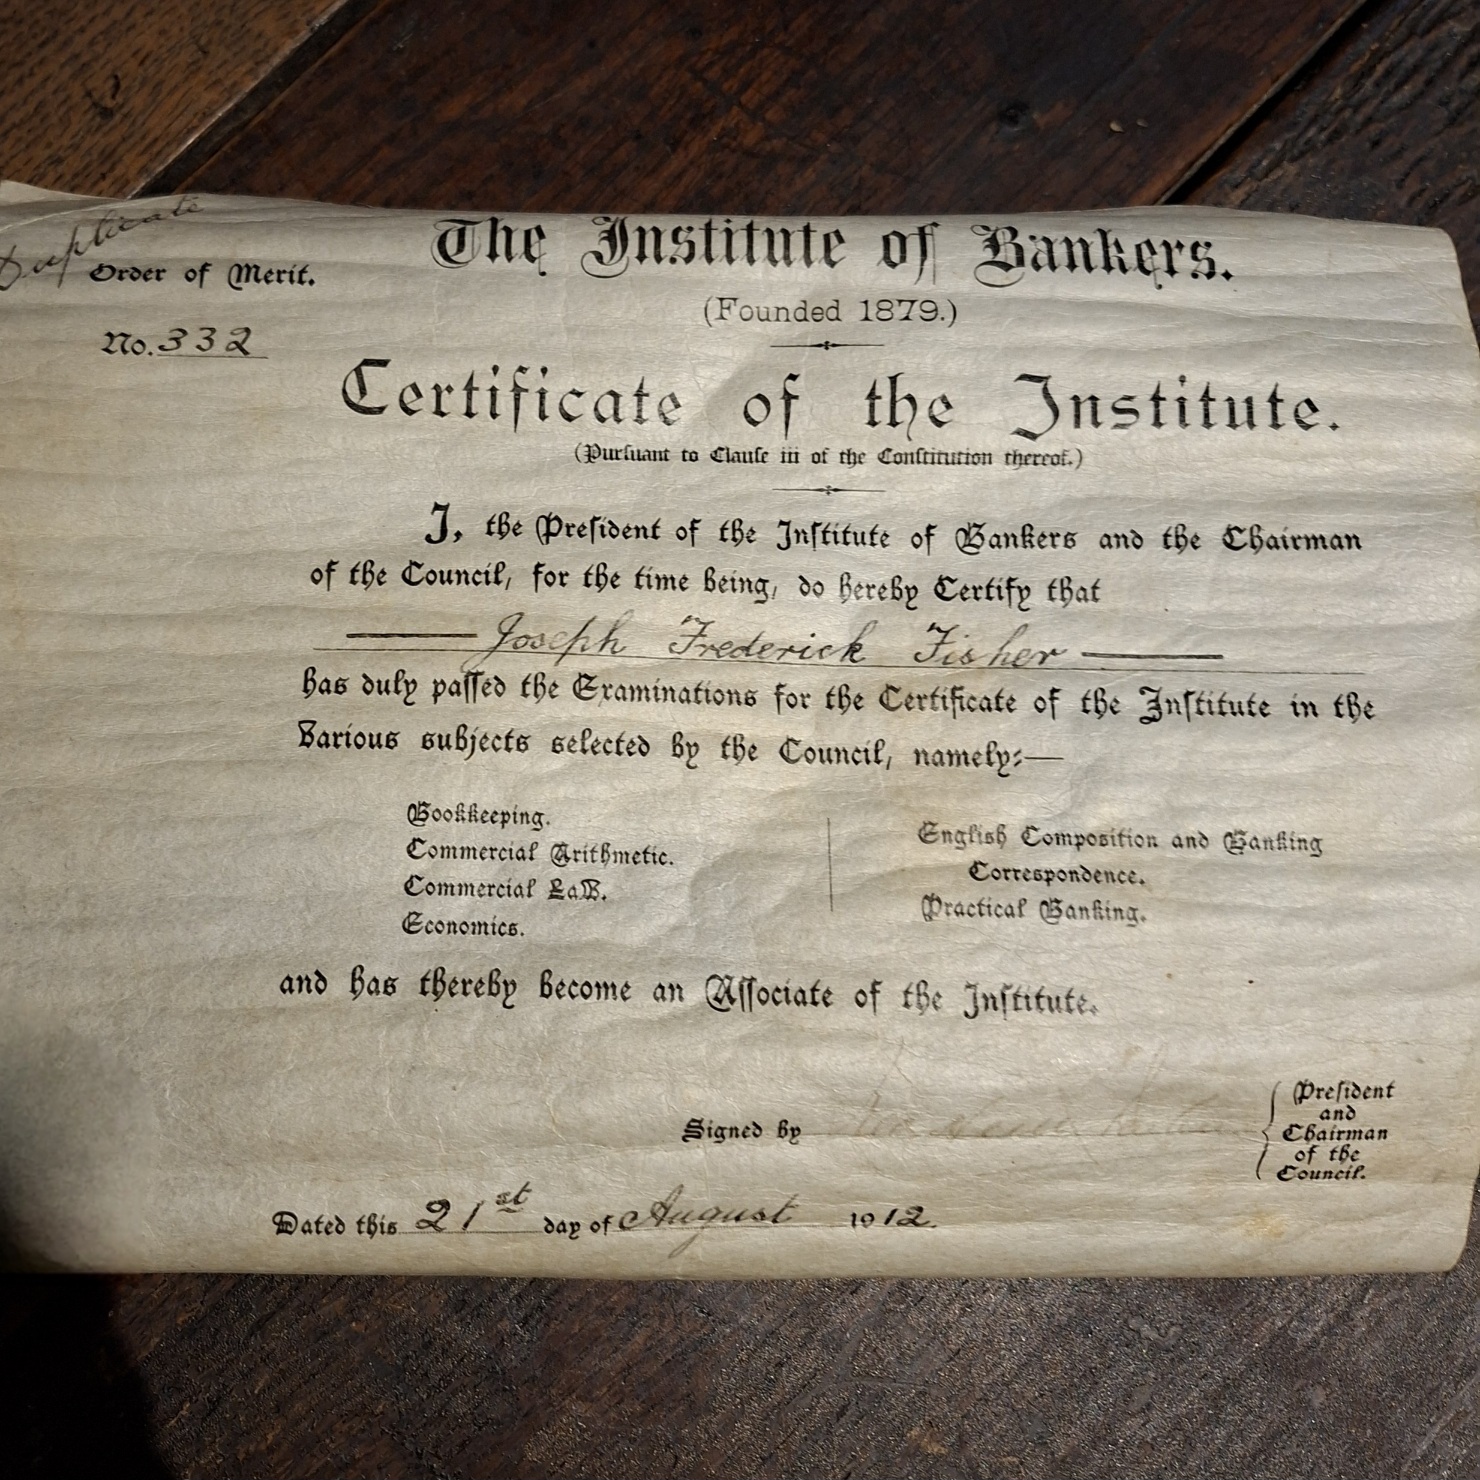 Duplicate
Order of Merit.
No. 332
The Institute of Bankers.
(Founded 1879.)
Certificate of the Institute.
(Purſuant to Clauſe iii of the Conſtitution thereof.)
I, the Preſident of the Inſtitute of Bankers and the Chairman
of the Council, for the time being, do hereby Certify that
Joseph Frederick Fisher
has duly paſſed the Examinations for the Certificate of the Inſtitute in the
Various subjects selected by the Council, namely:—
Bookkeeping.
Commercial Arithmetic.
Commercial Law.
Economics.
English Composition and Banking
Correspondence.
Practical Banking.
and has thereby become an Aſſociate of the Inſtitute.
Signed by
Preſident
and
Chairman
of the
Council.
Dated this 21st day of August 1912.